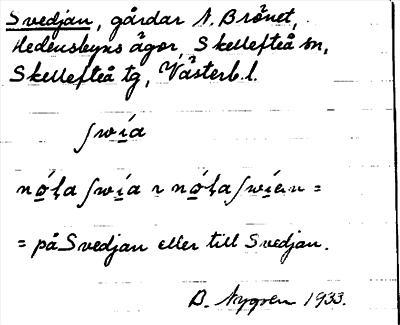 Svedjan, gårdar N. Brönet,
Hedensbyns ägor, Skellefteå sn,
Skellefteå tg, Västerb.l.
ʃwi̲a
nó̲ɫa ʃwí̲a ~ nó̲ɫa ʃwí̲an =
= på Svedjan eller till Svedjan.
B. Nygren 1933.